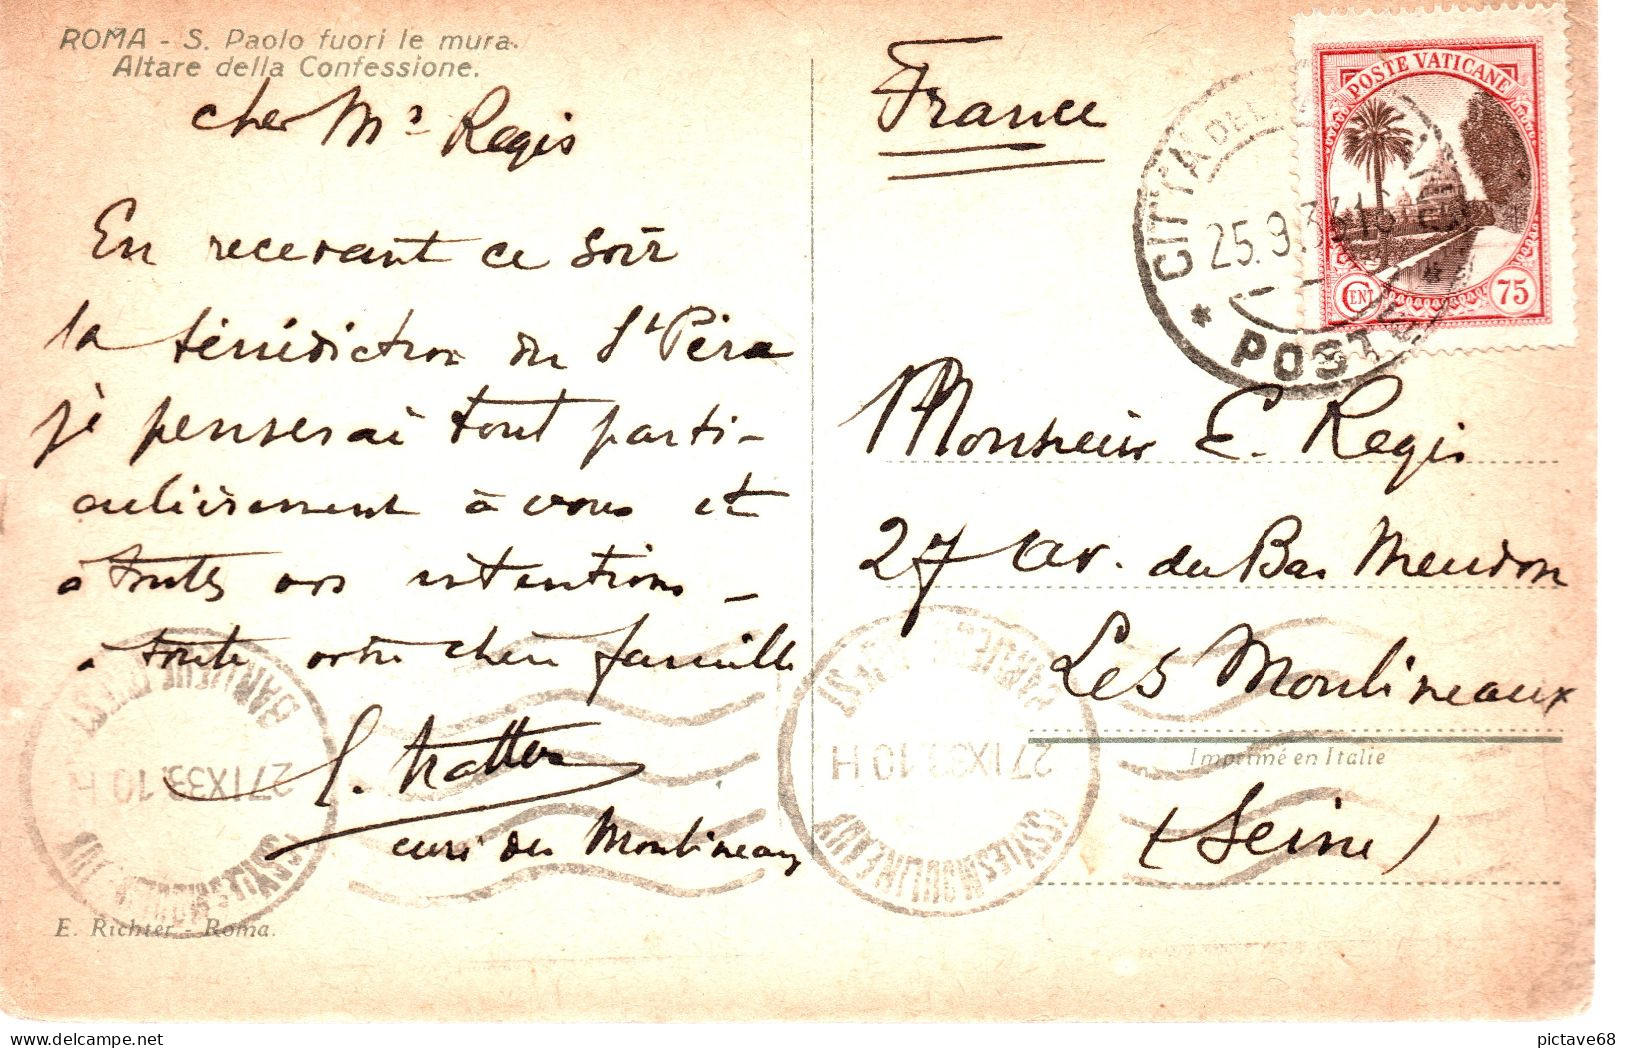 ROMA - S. Paolo fuori le mura.
Altare della Confessione.
cher Mr Regis
En recevant ce soir
la bénédiction du St Père
je penserai tout parti-
culièrement à vous et
à toutes vos intentions -
à toute votre chère famille
curé des Moulineaux
E. Richter - Roma.
France
POSTE VATICANE
CENT 75
CITTÀ DEL
25.9.33.16
* POSTE
Monsieur E. Regis
27 av. du Bas Meudon
Les Moulineaux
Imprimé en Italie
(Seine)
ISSY LES MOULINEAUX
27 IX 33 10 H
BANLIEUE OUEST
ISSY LES MOULINEAUX
27 IX 33 10 H
BANLIEUE OUEST
pictave68